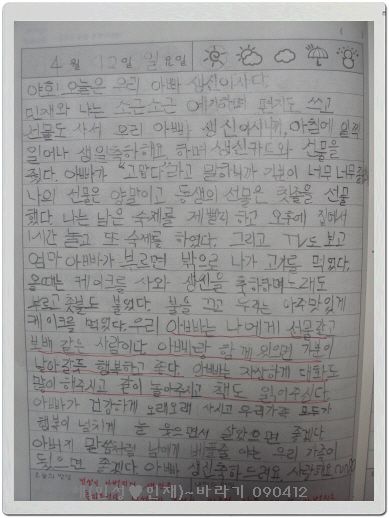 4월 12일 일요일
야회 오늘은 우리 아빠 생신이시다.
민재와 나는 소근소근 얘기하며 편지도 쓰고
선물도 사서 우리 아빠 생신이시니까, 아침에 일찍
일어나 생일축하해요 하며 생신카드와 선물을
줬다. 아빠가 "고맙다"라고 말하니까 기분이 너무너무
나의 선물은 양말이고 동생의 선물은 칫솔을 선물
했다. 나는 남은 숙제를 게을리 하고 오후에 집에서
1시간 놀고 또 숙제를 하였다. 그리고 TV도 보고
엄마 아빠가 부르면 밖으로 나가 고기를 먹었다.
올때는 케이크를 사와 생신을 축하하며 노래도
부르고 촛불도 불었다. 불을 끄고 우리는 아주맛있게
케이크를 먹었다. 우리 아빠는 나에게 선물같고
보배 같은 사람이다. 아빠랑 함께 있으면 기분이
날아갈듯 행복하고 좋다. 아빠는 자상하게 대화도
많이 해주시고 같이 놀아주시고 책도 읽어주신다.
아빠가 건강하게 오래오래 사시고 우리가족 모두가
행복이 넘치게 늘 웃으면서 살았으면 좋겠다
아버지 말씀처럼 남에게 베풀줄 아는 우리 가족이
됬으면 좋겠다. 아빠 생신축하드려요 사랑해요
오늘의 반성
♥민재)~바라기 090412